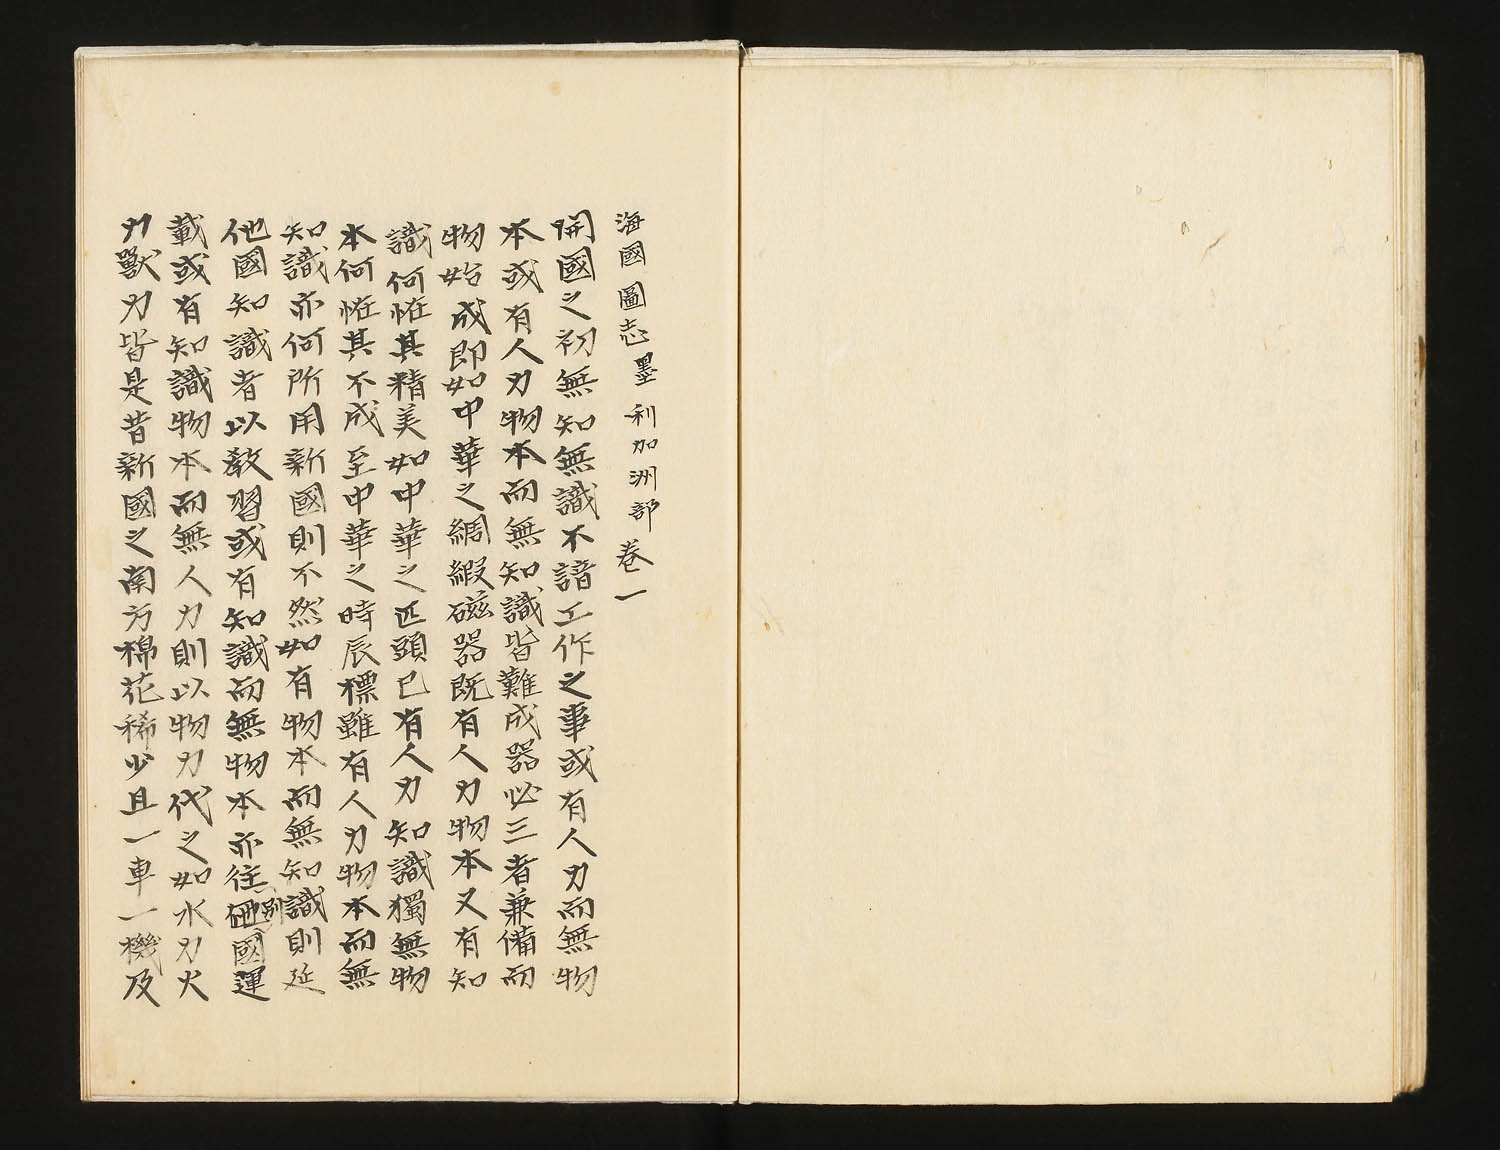 海國圖志墨利加洲部卷一
開國之初無知無識不諳工作之事或有人力而無物
本或有人力物本而無知識皆難成器必三者兼備而
物始成即如中華之綢緞磁器既有人力物本又有知
識何怪其精美如中華之匹頭已有人力知識獨無物
本何怪其不成至中華之時辰標雖有人力物本而無
知識亦何所用新國則不然如有物本而無知識則延
他國知識者以教習或有知識而無物本亦往別國運
載或有知識物本而無人力則以物力代之如水力火
力獸力皆是昔新國之南方棉花稀少且一車一機及